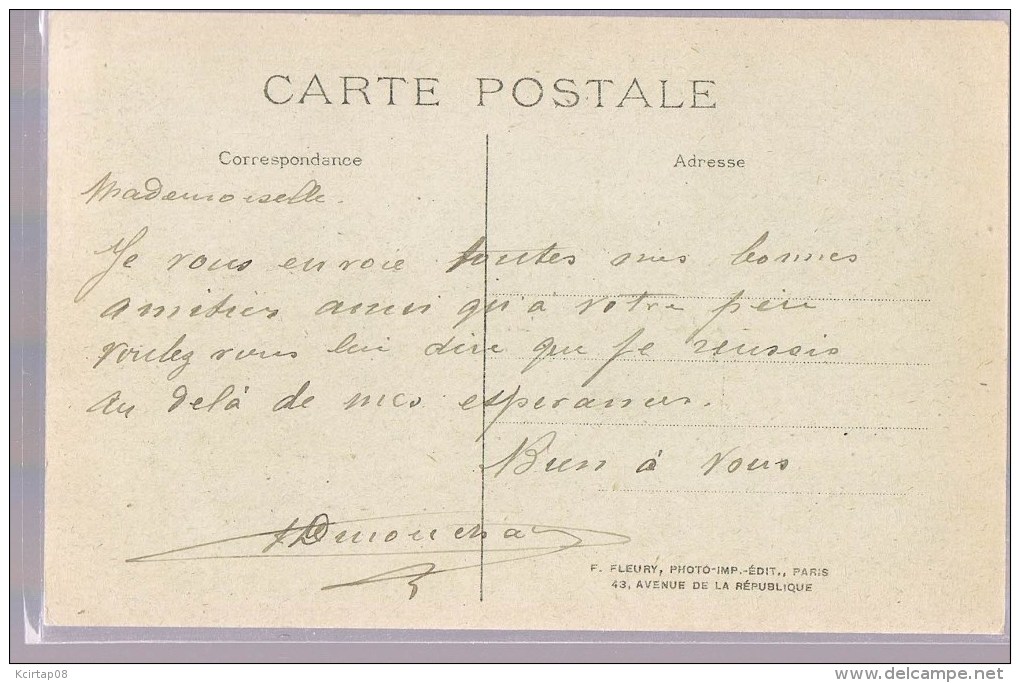 CARTE POSTALE
Correspondance
Adresse
Mademoiselle.
Je vous envoie toutes mes bonnes
amitiés ainsi qu'à votre père
voulez vous lui dire que je réussis
au delà de mes esperances.
Bien à vous
F. FLEURY, PHOTO-IMP.-ÉDIT., PARIS
43, AVENUE DE LA RÉPUBLIQUE
Kcirtap08
www.delcampe.net